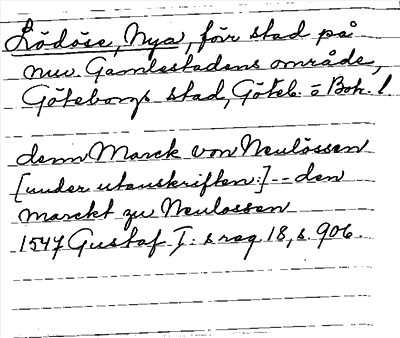 Lödöse, Nya, förr stad på
nuv. Gamlestadens område,
Göteborgs stad, Göteb. o Boh. l
denn Marck von Neulössen
[under utanskriften:] -- den
marckt zu Neulossen
1547 Gustaf I: s reg. 18, s. 906.